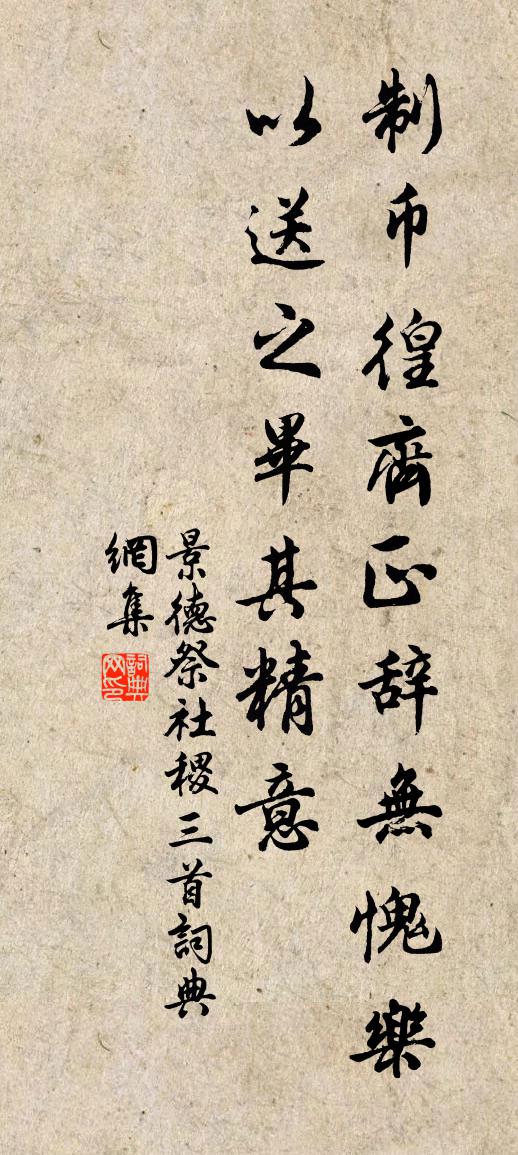 制币徨齊正辞無愧樂
以送之畢其精意
景德祭社稷三首詞典
網集
詞典网印